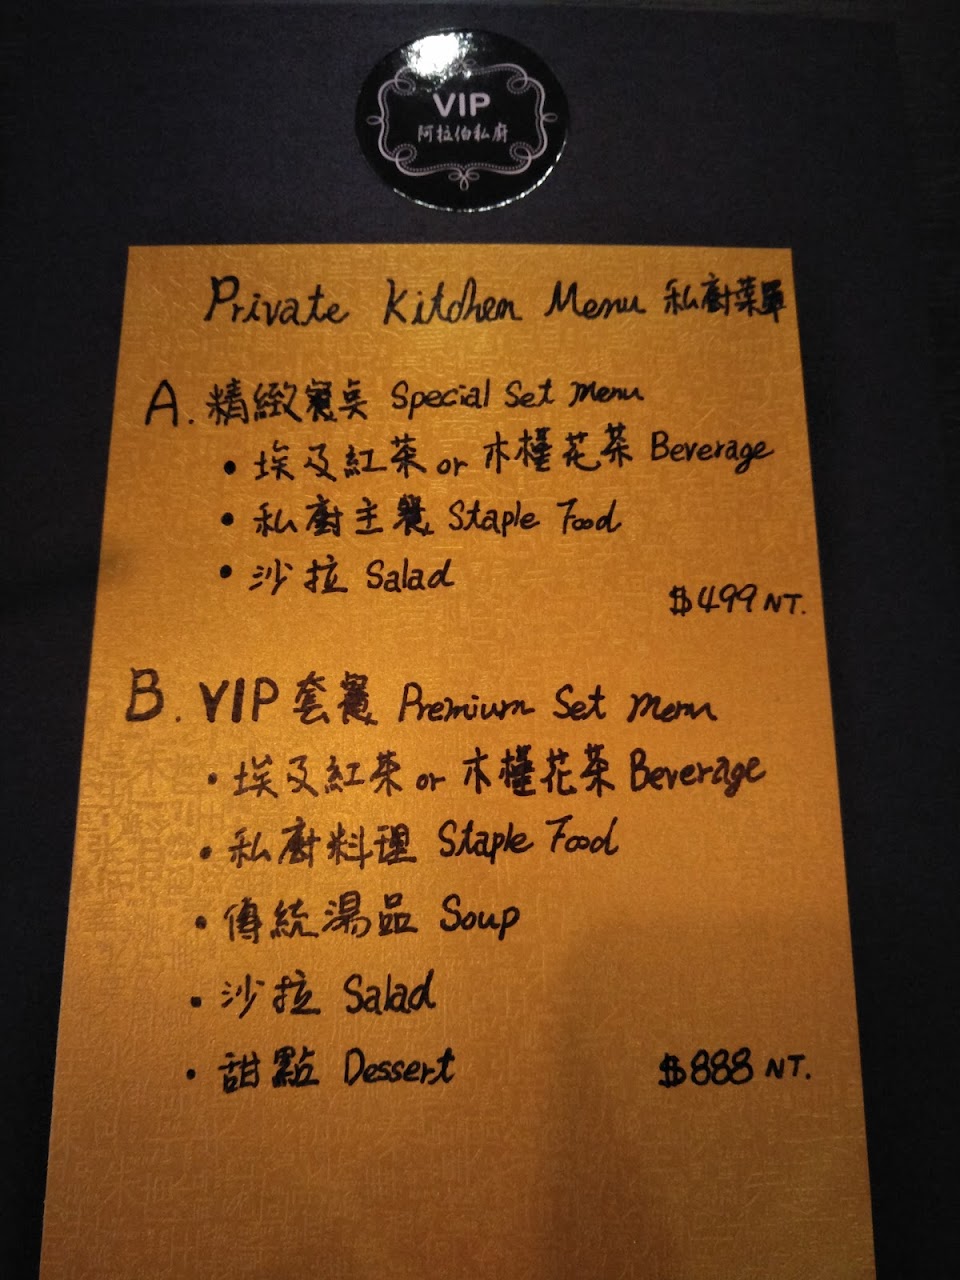 VIP
阿拉伯私廚
Private Kitchen Menu 私廚菜單
A. 精緻餐点 Special Set Menu
• 埃及紅茶 or 木槿花茶 Beverage
• 私廚主餐 Staple Food
• 沙拉 Salad
$499 NT.
B. VIP 套餐 Premium Set Menu
• 埃及紅茶 or 木槿花茶 Beverage
• 私廚料理 Staple Food
• 傳統湯品 Soup
• 沙拉 Salad
• 甜點 Dessert $888 NT.